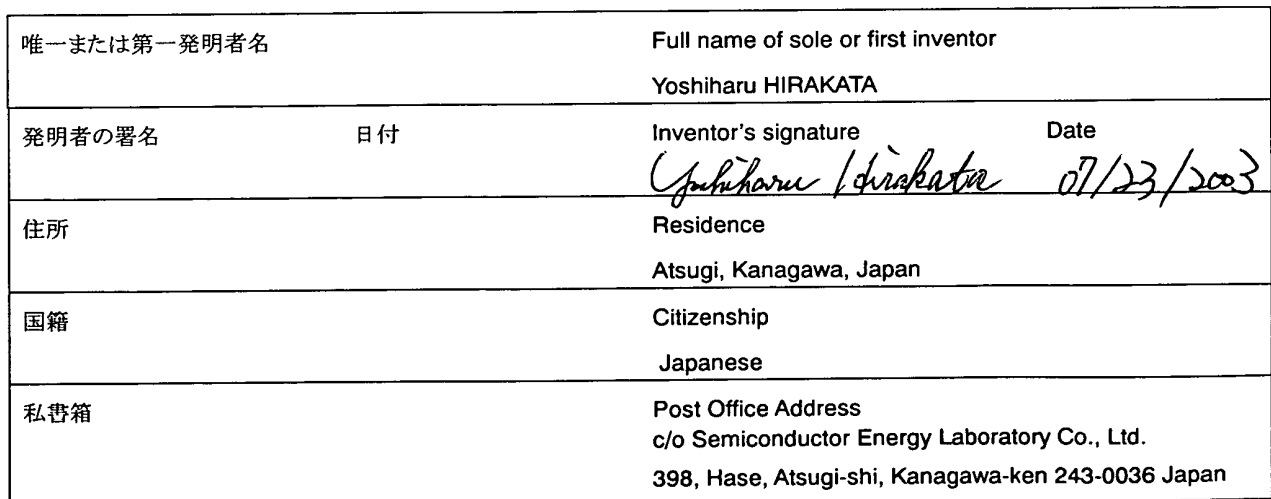 唯一または第一発明者名
Full name of sole or first inventor
Yoshiharu HIRAKATA
発明者の署名 日付
Inventor's signature Date
Yoshiharu Hirakata 07/23/2003
住所
Residence
Atsugi, Kanagawa, Japan
国籍
Citizenship
Japanese
私書箱
Post Office Address
c/o Semiconductor Energy Laboratory Co., Ltd.
398, Hase, Atsugi-shi, Kanagawa-ken 243-0036 Japan